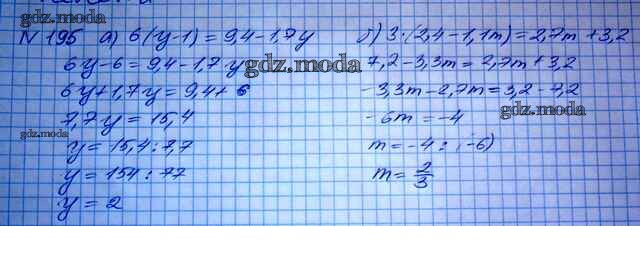 N 195 а) 6(y-1) = 9,4-1,7y
6y-6 = 9,4-1,7y
6y+1,7y = 9,4+6
7,7y = 15,4
y = 15,4:7,7
y = 154:77
y = 2
б) 3·(2,4-1,1m) = 2,7m+3,2
7,2-3,3m = 2,7m+3,2
-3,3m-2,7m = 3,2-7,2
-6m = -4
m = -4:(-6)
m = 2/3
gdz.moda
gdz.moda
gdz.moda
gdz.moda
gdz.moda